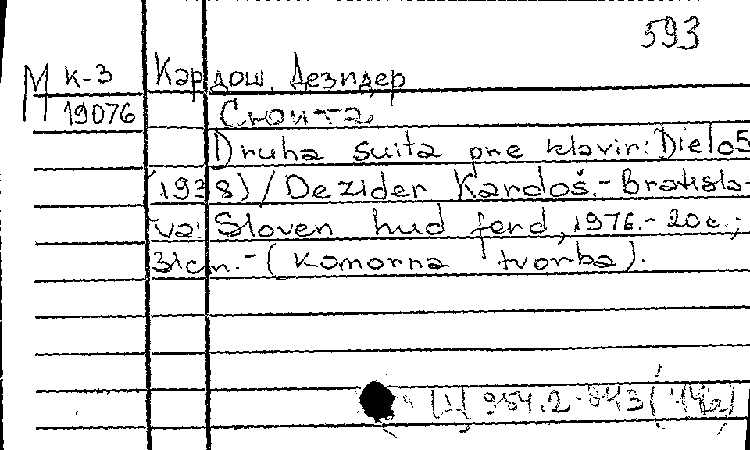 593
М К-3 Кардош, Дезидер
19076 Сюита
Druha suita pre klavir: Dielo5
(1938) / Dezider Kardoš.- Bratisla-
va: Sloven hud fond, 1976.- 20 с.;
31cm.- (Komorna tvorba).